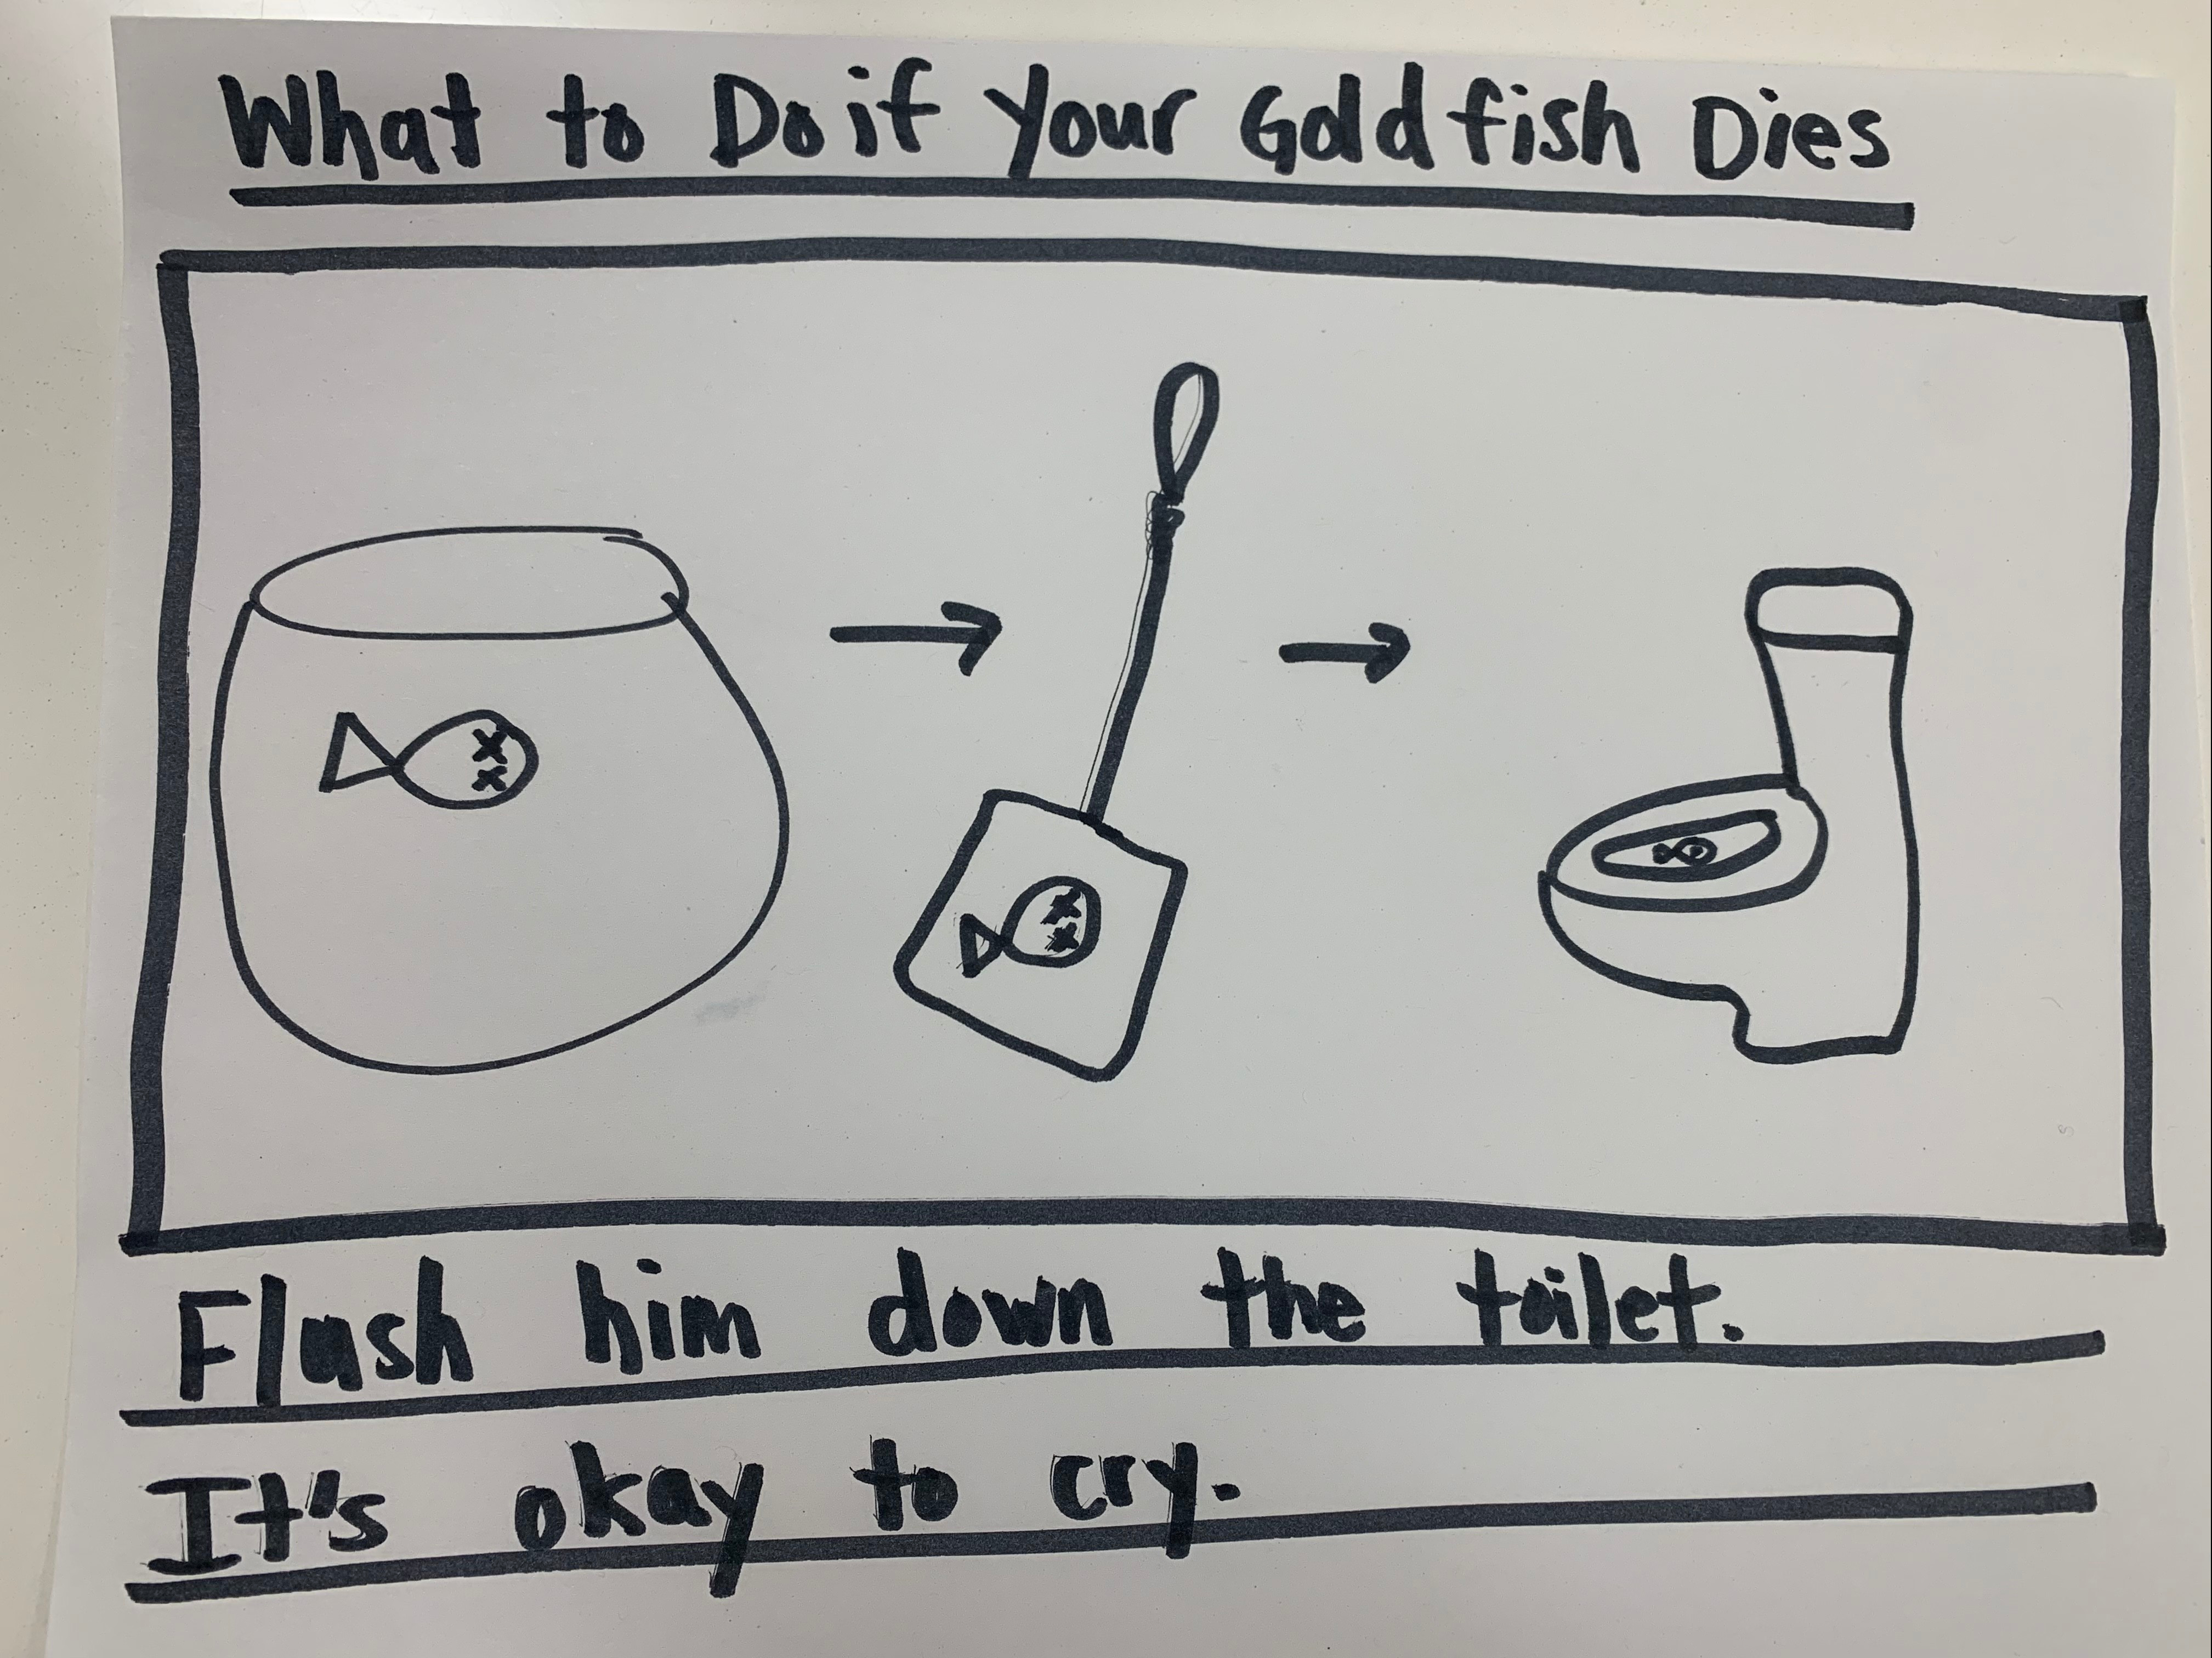 What to Do if Your Goldfish Dies
Flush him down the toilet.
It's okay to cry.